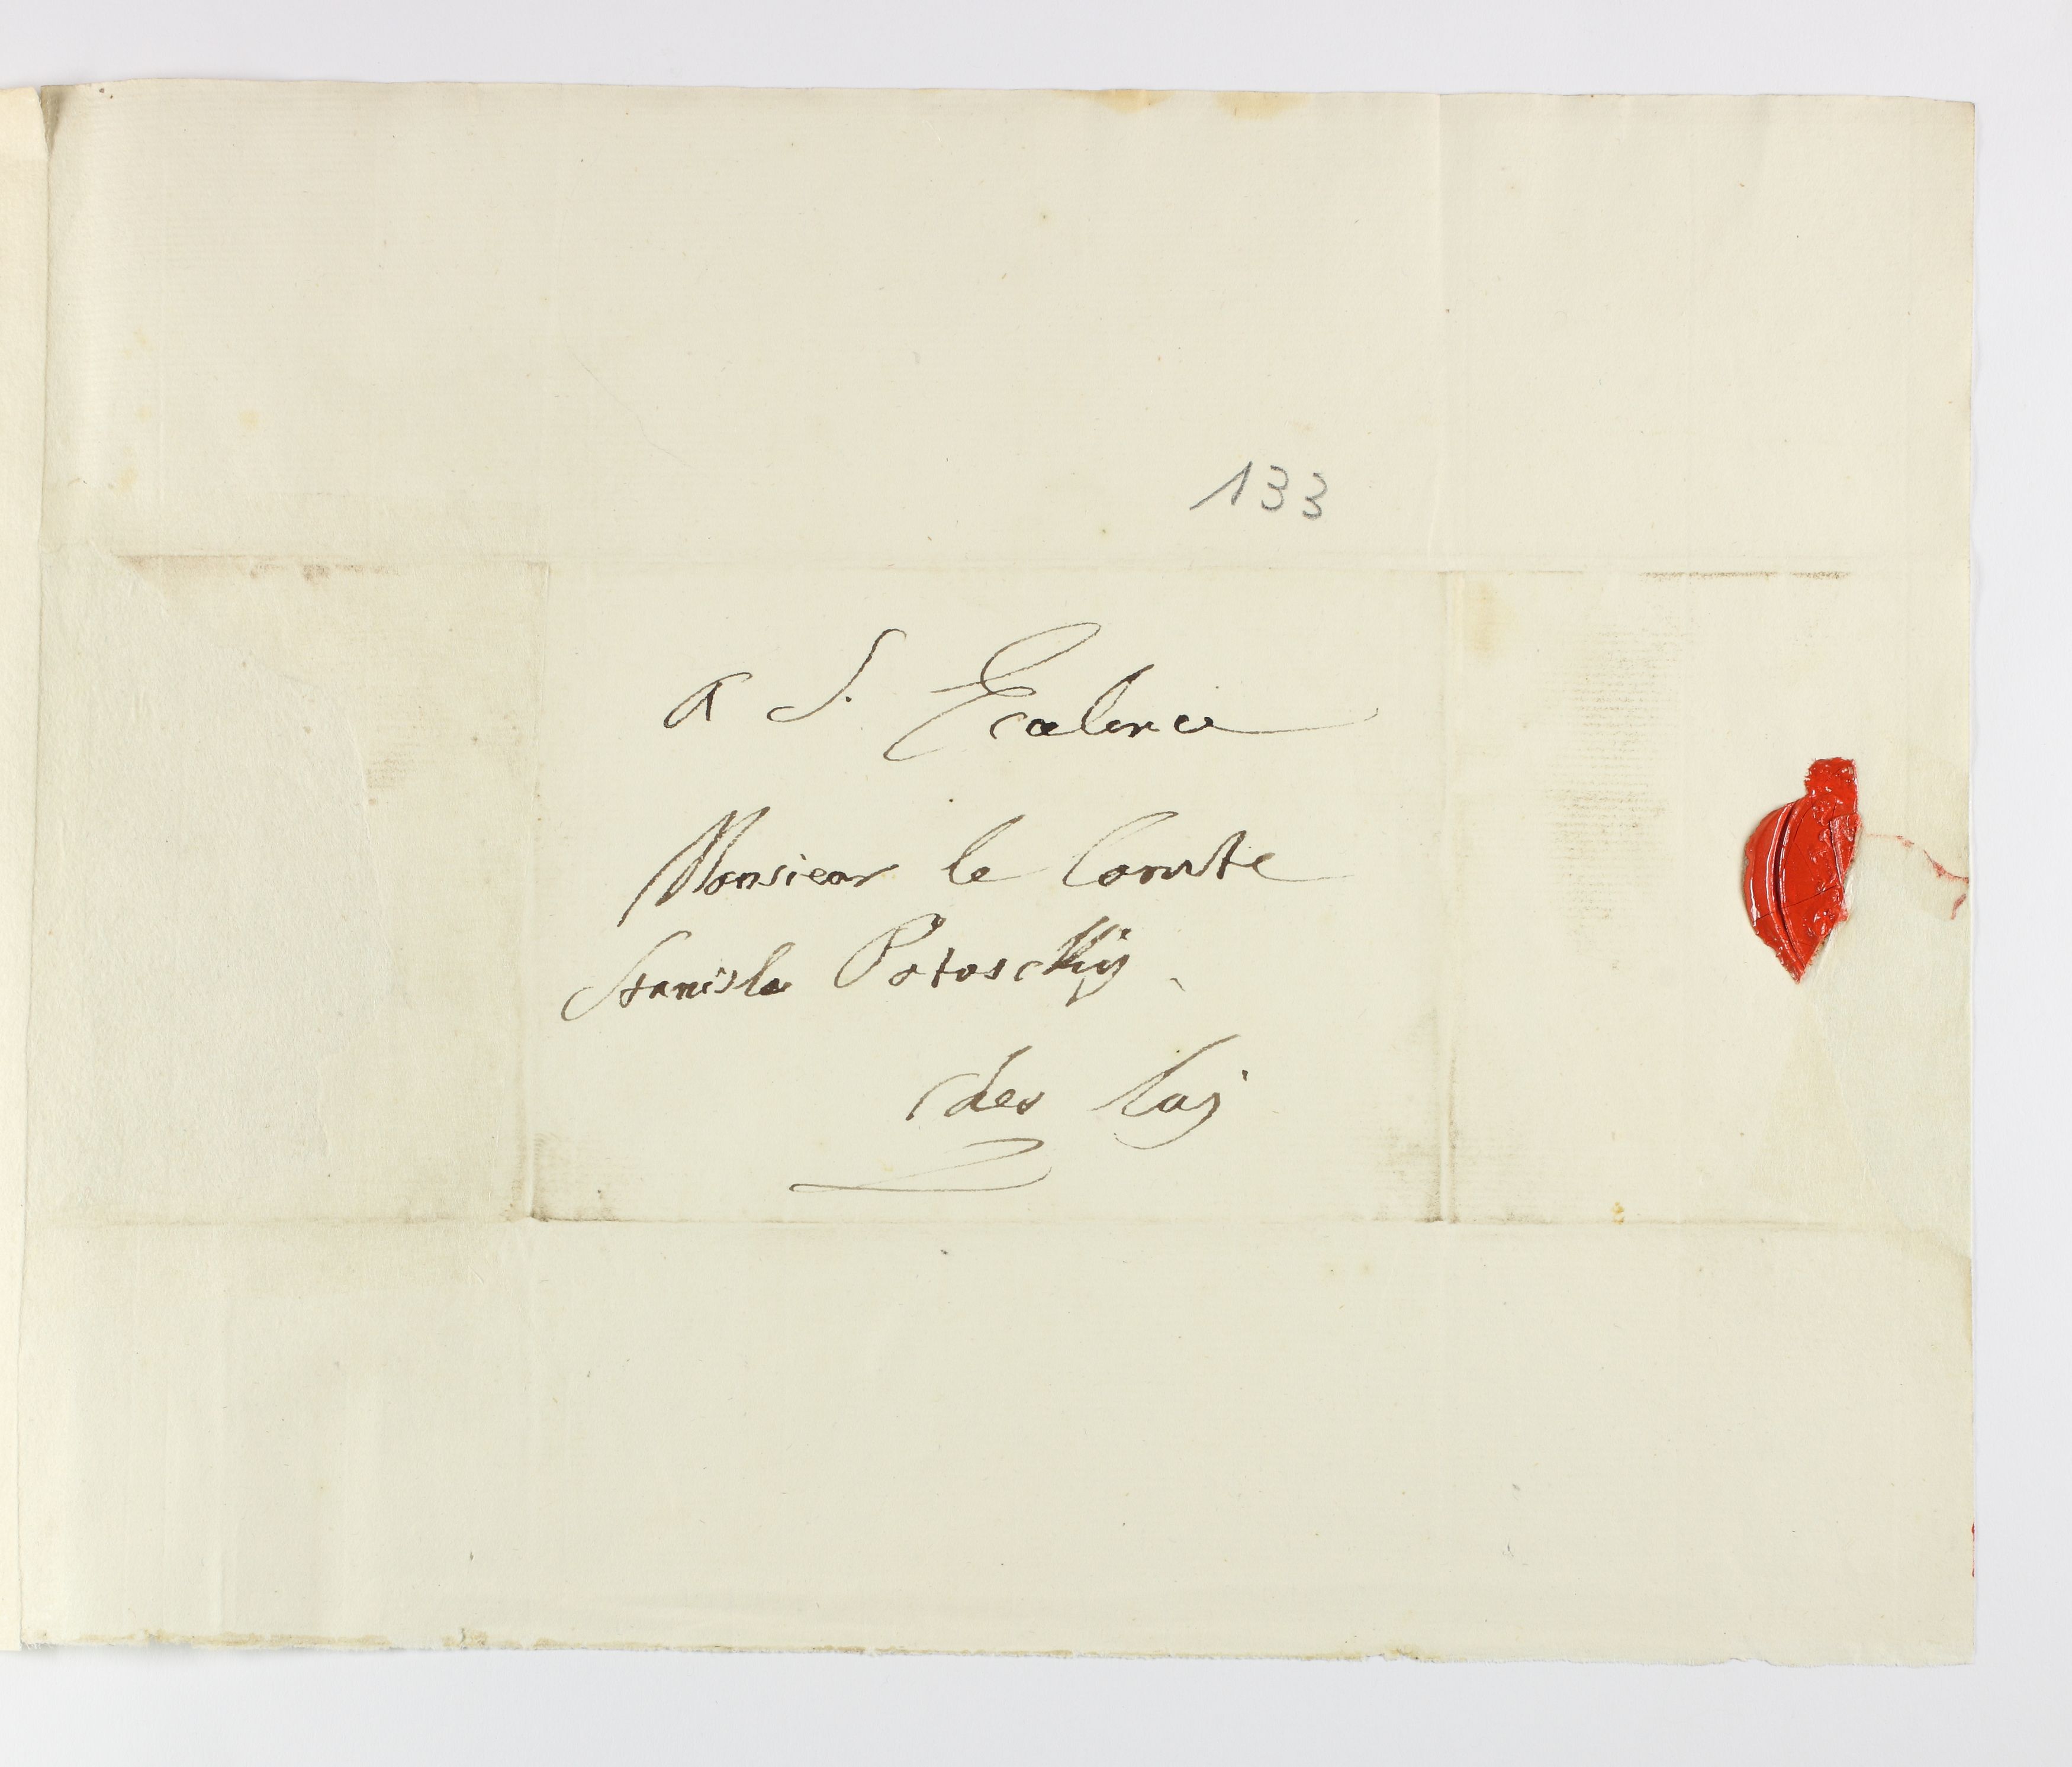 133
A S. Excelence
Monsieur le Comte
Stanisla Potosckij
ches luy